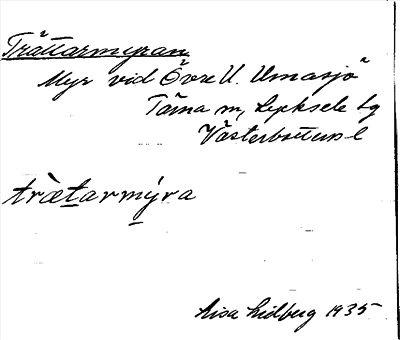 Trättarmyran
Myr vid Övre U. Umasjö
Tärna sn, Lycksele lg
Västerbottens l
trætarmýra
Lisa Lidberg 1935